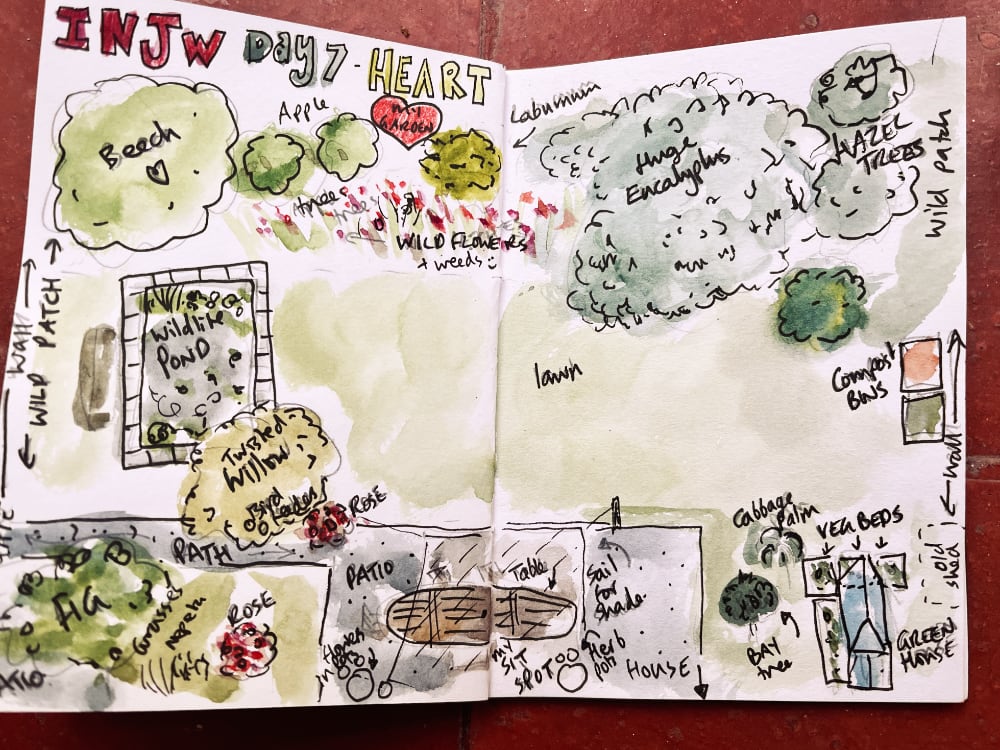 INJW Day 7 - HEART
MY
GARDEN
Beech
Apple
trees
WILD FLOWERS
+ weeds
Laburnum
Huge
Eucalyptus
HAZEL
TREES
wild patch
Wall
WILD PATCH
Wildlife
POND
lawn
Compost
BINS
wall
Twisted
Willow
Bird
feeders
ROSE
PATH
FIG
Grasses
nepeta
ROSE
PATIO
Table
Sail
for
shade
Herb
pots
my
SIT
SPOT
HOUSE
Cabbage
Palm
BAY
tree
VEG BEDS
GREEN
HOUSE
old
shed